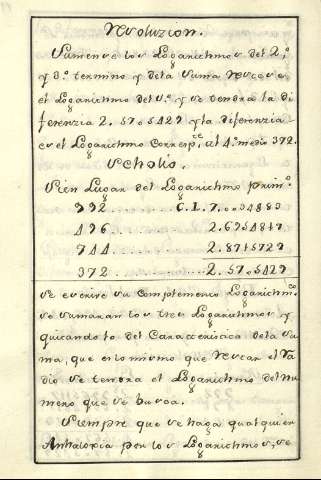 Resoluzion.
Sumense los Logarithmos del 2.º
y 3.º termino y dela suma restese
el Logarithmo del 1.º y se tendra la di
ferenzia 2.5705429 y la diferenzia
es el Logarithmo Corresp.te al 4.º medio 372.
Scholio.
Si en Lugar del Logarithmo prim.º
992 C.L.7.0034883
496 2.6954817
744 2.8715729
372 2.5705429
se escrive su Complemento Logarithmico
se sumaran los tres Logarithmos y
quitando 10 del Caracteristica de la su
ma, que es lo mismo que restar el Ra
dio se tendra el Logarithmo del nu
mero que se busca.
Siempre que se haga qualquier
Analoxia por los Logarithmos, se